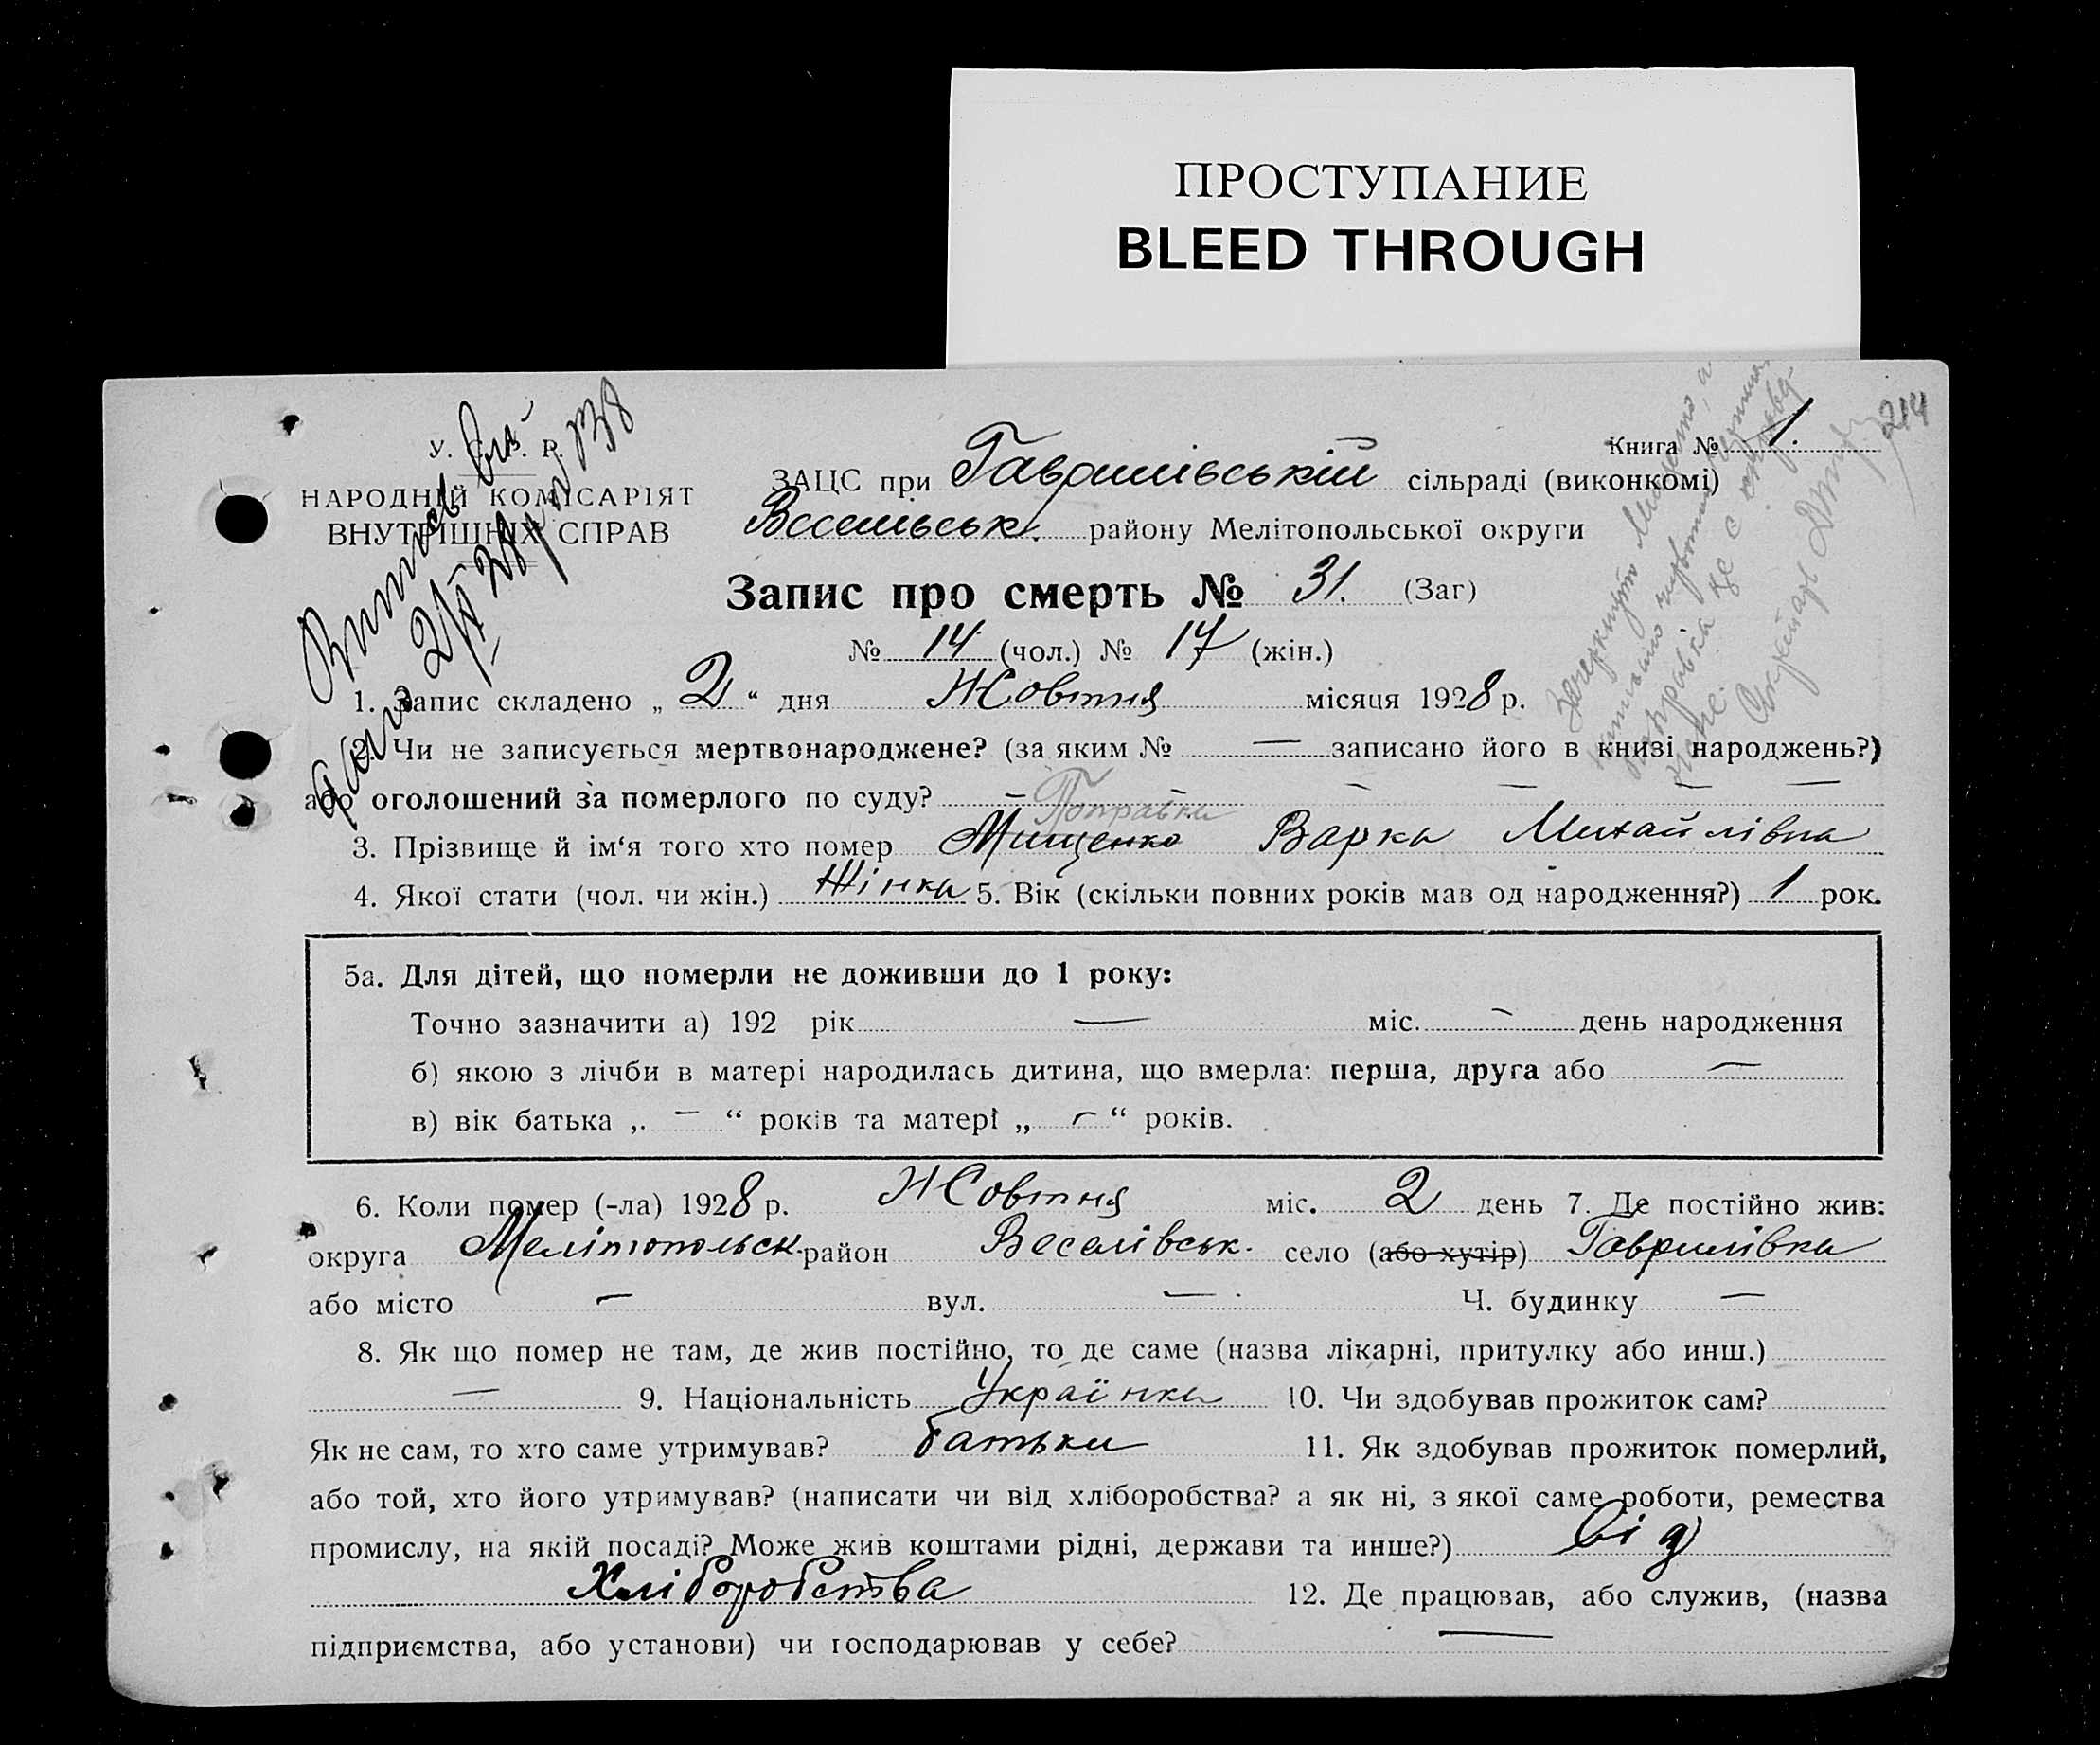 ПРОСТУПАНИЕ
BLEED THROUGH
214
Книга № 1.
У. С. Р. Р.
НАРОДНІЙ КОМІСАРІЯТ
ВНУТРІШНІХ СПРАВ
ЗАЦС при Гаврилівській сільраді (виконкомі)
Веселівськ. району Мелітопольської округи
Запис про смерть № 31. (Заг)
№ 14 (чол.) № 17 (жін.)
1. Запис складено „ 2 “ дня Жовтня місяця 1928 р.
2. Чи не записується мертвонароджене? (за яким № — записано його в книзі народжень?)
або оголошений за померлого по суду? — — — — — —
Поправка
3. Прізвище й ім‘я того хто помер Мищенко Варка Михайлівна
4. Якої стати (чол. чи жін.) Жінка 5. Вік (скільки повних років мав од народження?) 1 рок.
5а. Для дітей, що померли не доживши до 1 року:
Точно зазначити а) 192 рік — міс. — день народження
б) якою з лічби в матері народилась дитина, що вмерла: перша, друга або —
в) вік батька „ — “ років та матері „ — “ років.
6. Коли помер (-ла) 1928 р. Жовтня міс. 2 день 7. Де постійно жив:
округа Мелітопольск. район Веселівськ. село (або хутір) Гаврилівка
або місто — вул. — Ч. будинку —
8. Як що помер не там, де жив постійно, то де саме (назва лікарні, притулку або инш.)
— 9. Національність Українка 10. Чи здобував прожиток сам?
Як не сам, то хто саме утримував? батьки 11. Як здобував прожиток померлий,
або той, хто його утримував? (написати чи від хліборобства? а як ні, з якої саме роботи, ремества
промислу, на якій посаді? Може жив коштами рідні, держави та инше?) від
Хліборобства 12. Де працював, або служив, (назва
підприємства, або установи) чи господарював у себе? —